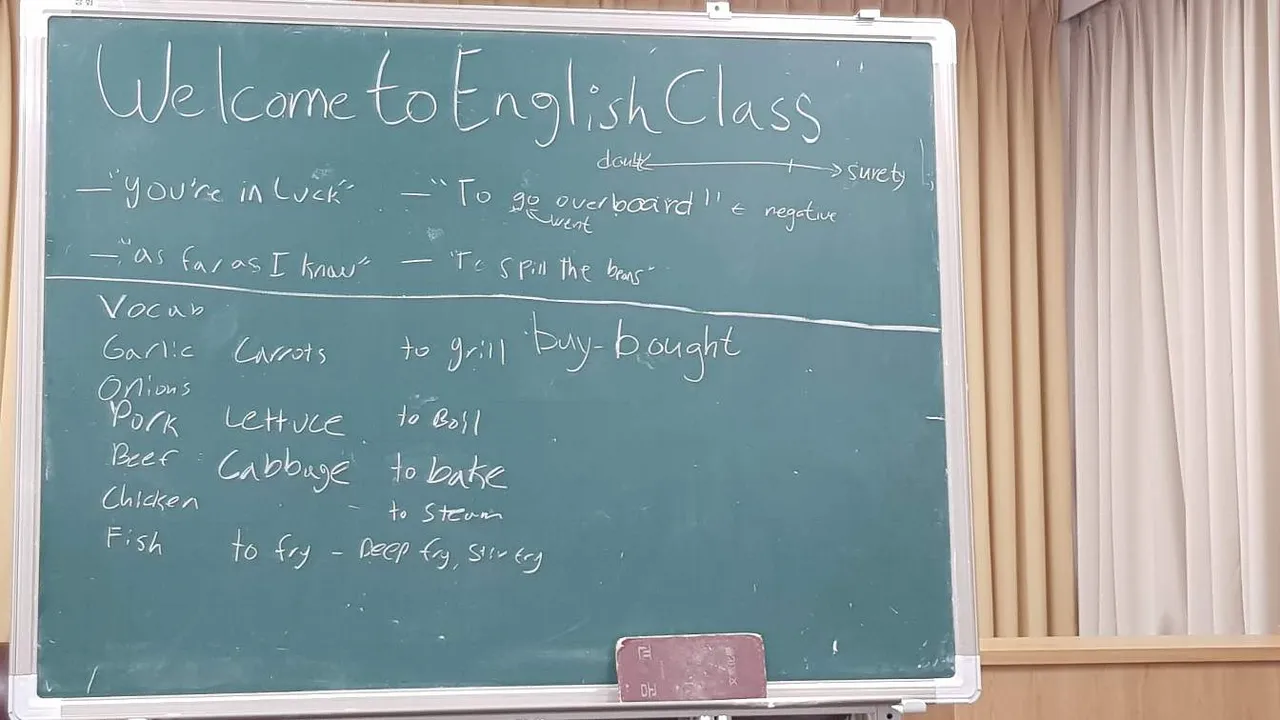 Welcome to English Class
doubt surety
– "you're in luck" – "To go overboard" ← negative
went
– "as far as I know" – "To spill the beans"
Vocab
Garlic Carrots to grill buy - bought
Onions
Pork Lettuce to Boil
Beef Cabbage to bake
Chicken to steam
Fish to fry – Deep fry, Stir fry